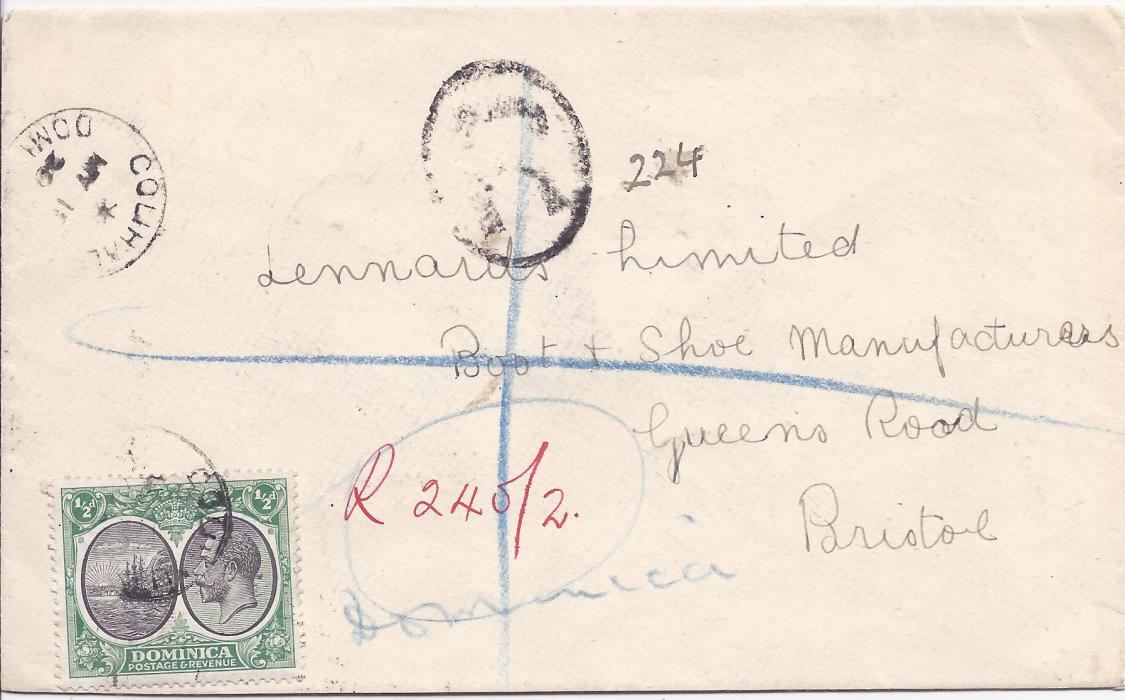 COLIHAU
DOMI
224
Lennards Limited
Boot + Shoe Manufacturers
Queens Road
Bristol
R 240/2.
Dominica
½d ½d
DOMINICA
POSTAGE & REVENUE